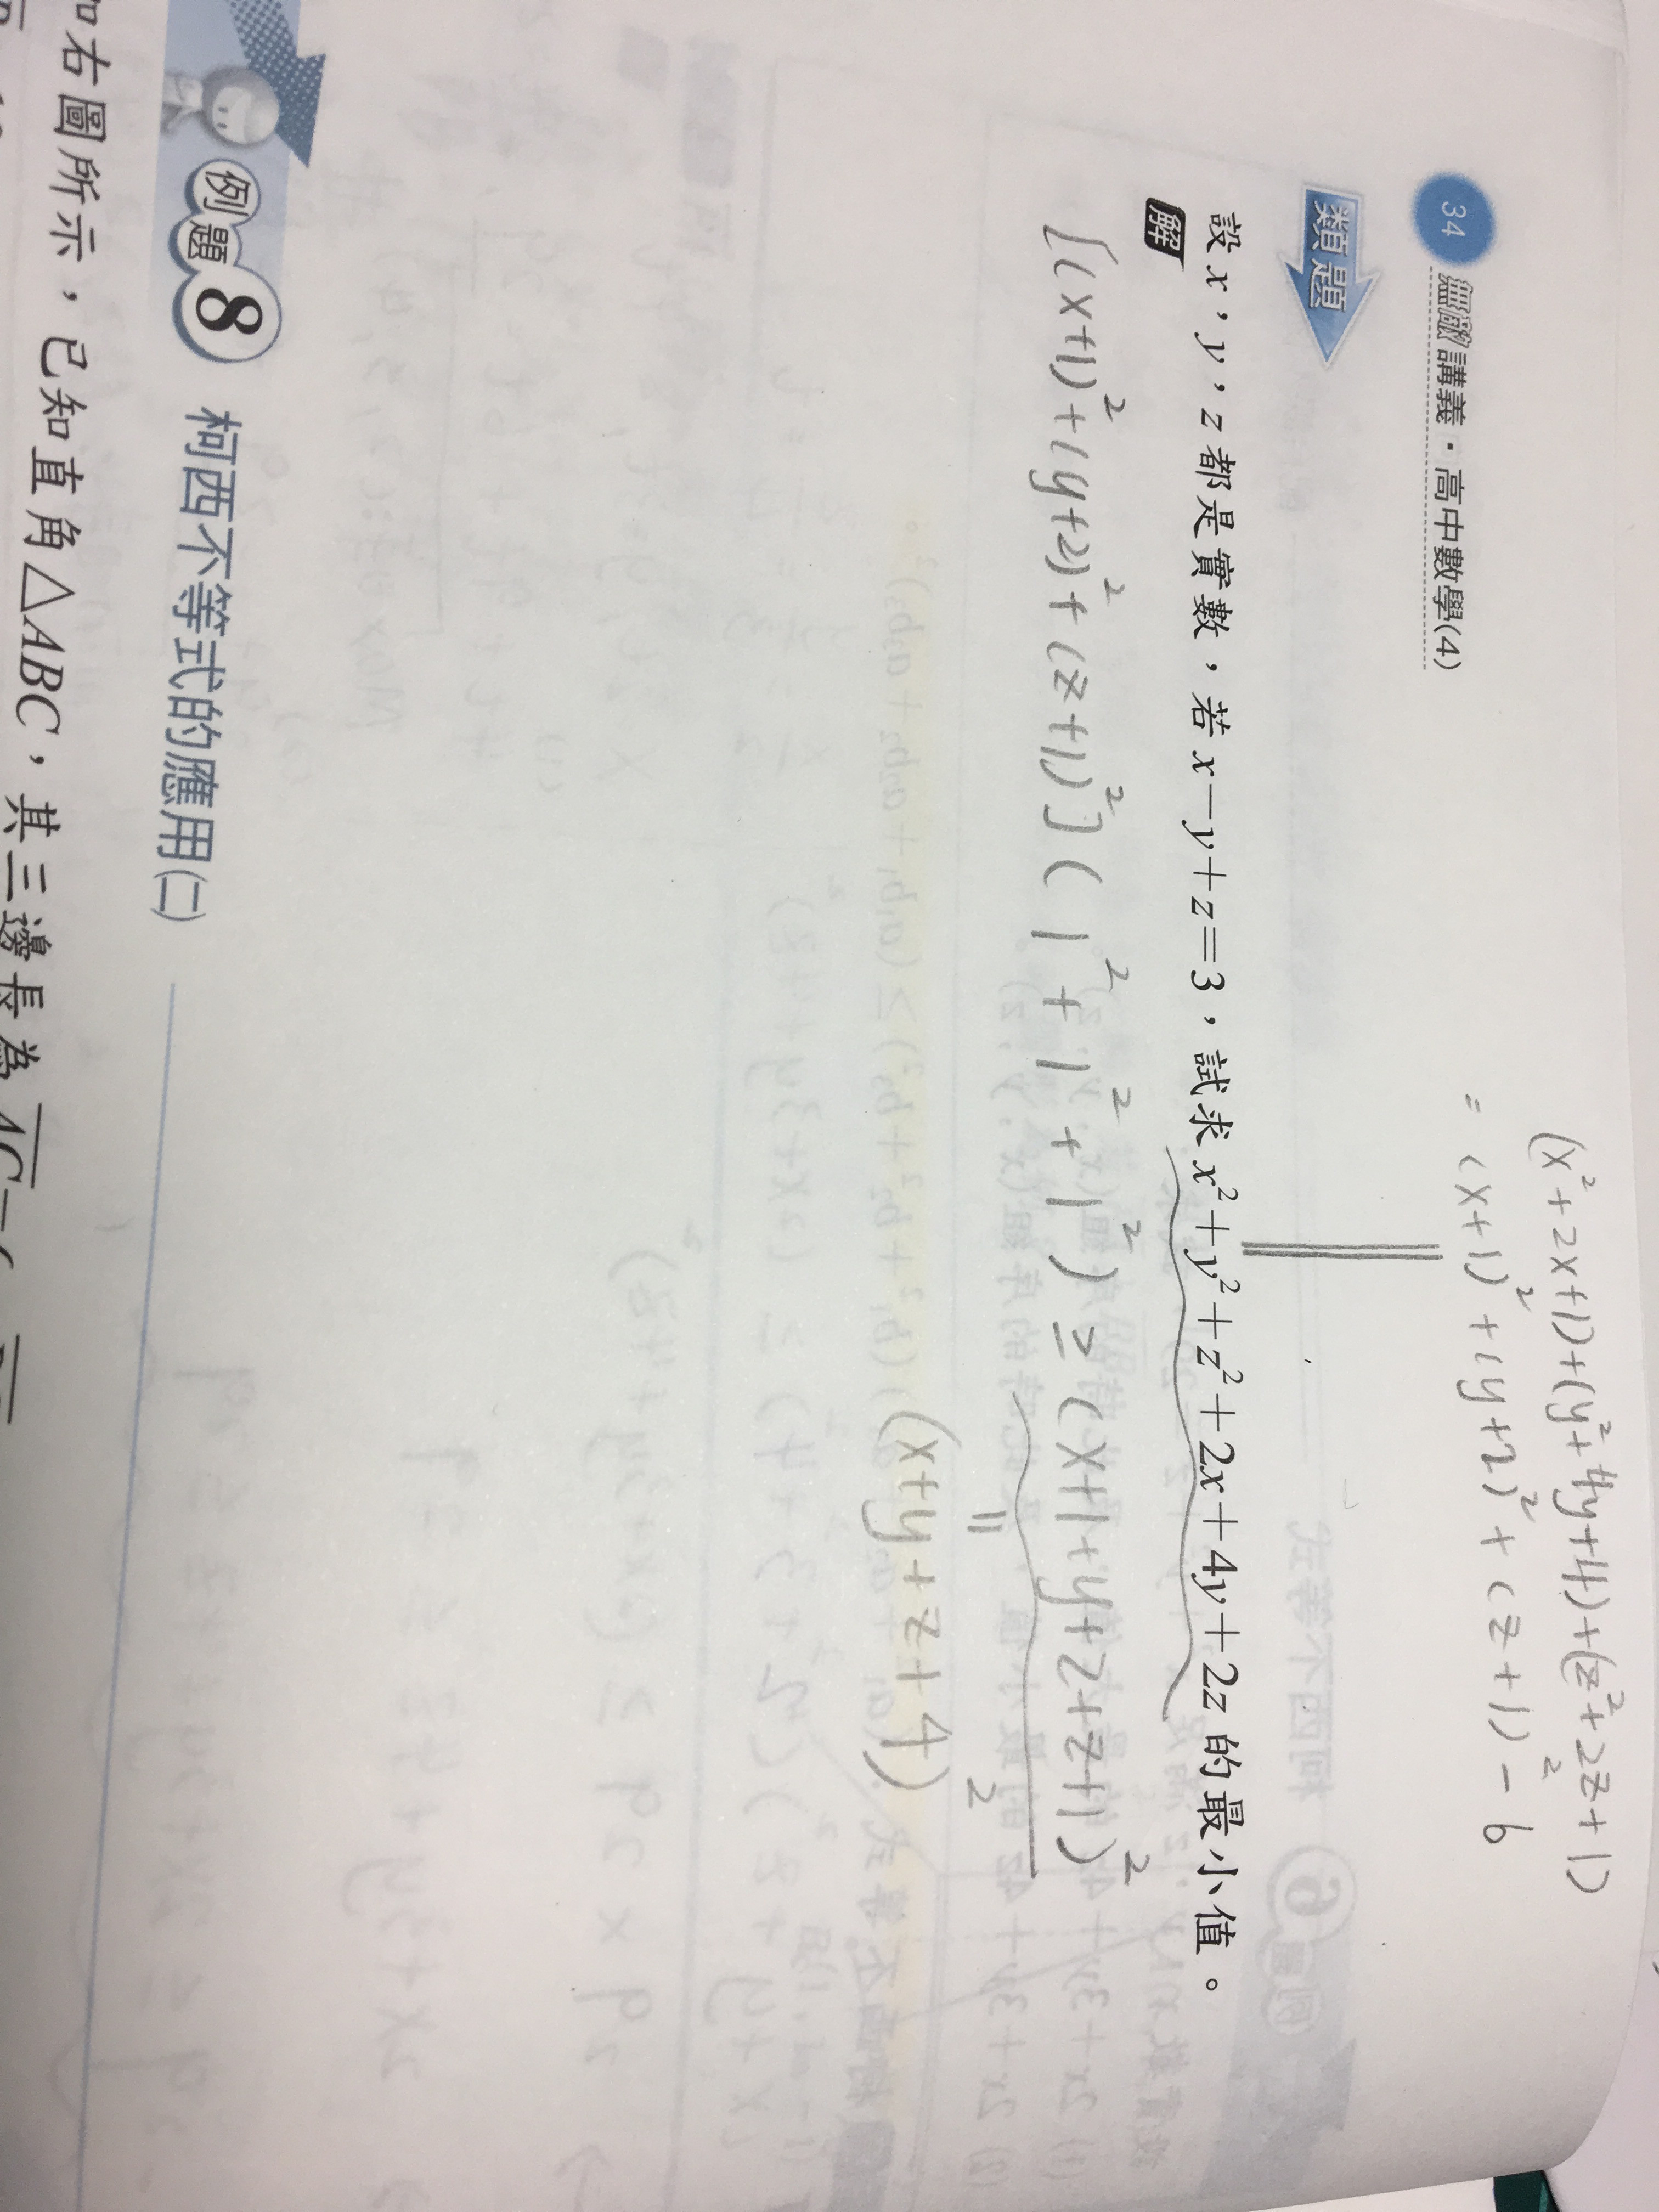 34 無敵講義・高中數學(4)
(x²+2x+1)+(y²+4y+4)+(z²+2z+1)
= (x+1)²+(y+2)²+(z+1)²-6
類題
設x,y,z都是實數,若x-y+z=3,試求x²+y²+z²+2x+4y+2z的最小值。
解
[(x+1)²+(y+2)²+(z+1)²](1²+1²+1²)≥(x+1+y+2+z+1)²
=
(x+y+z+4)²
例題8 柯西不等式的應用(二)
如右圖所示,已知直角△ABC,其三邊長為